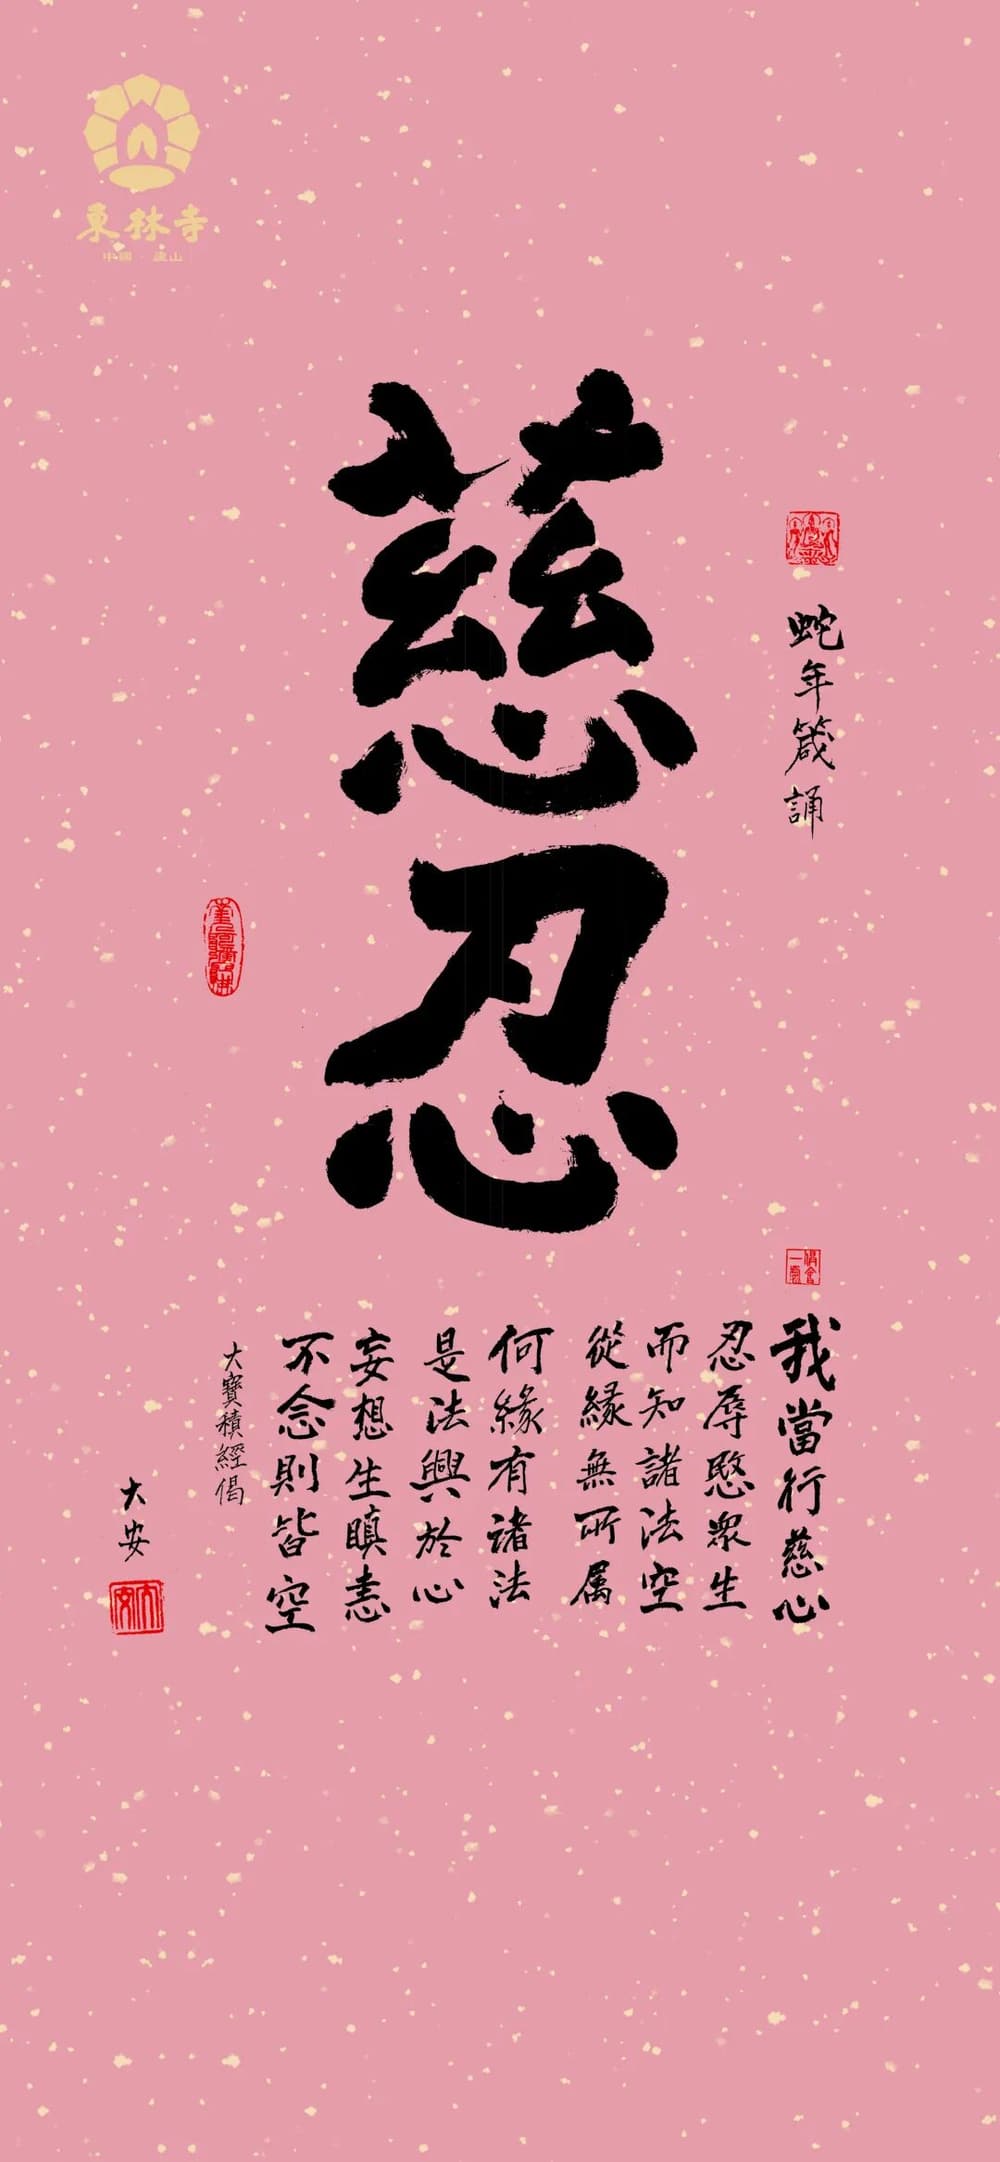 東林寺
中國 廬山
慈忍
蛇年箴誦
我當行慈心
忍辱愍眾生
而知諸法空
從緣無所属
何緣有诸法
是法興於心
妄想生瞋恚
不念則皆空
大寶積經偈
大安